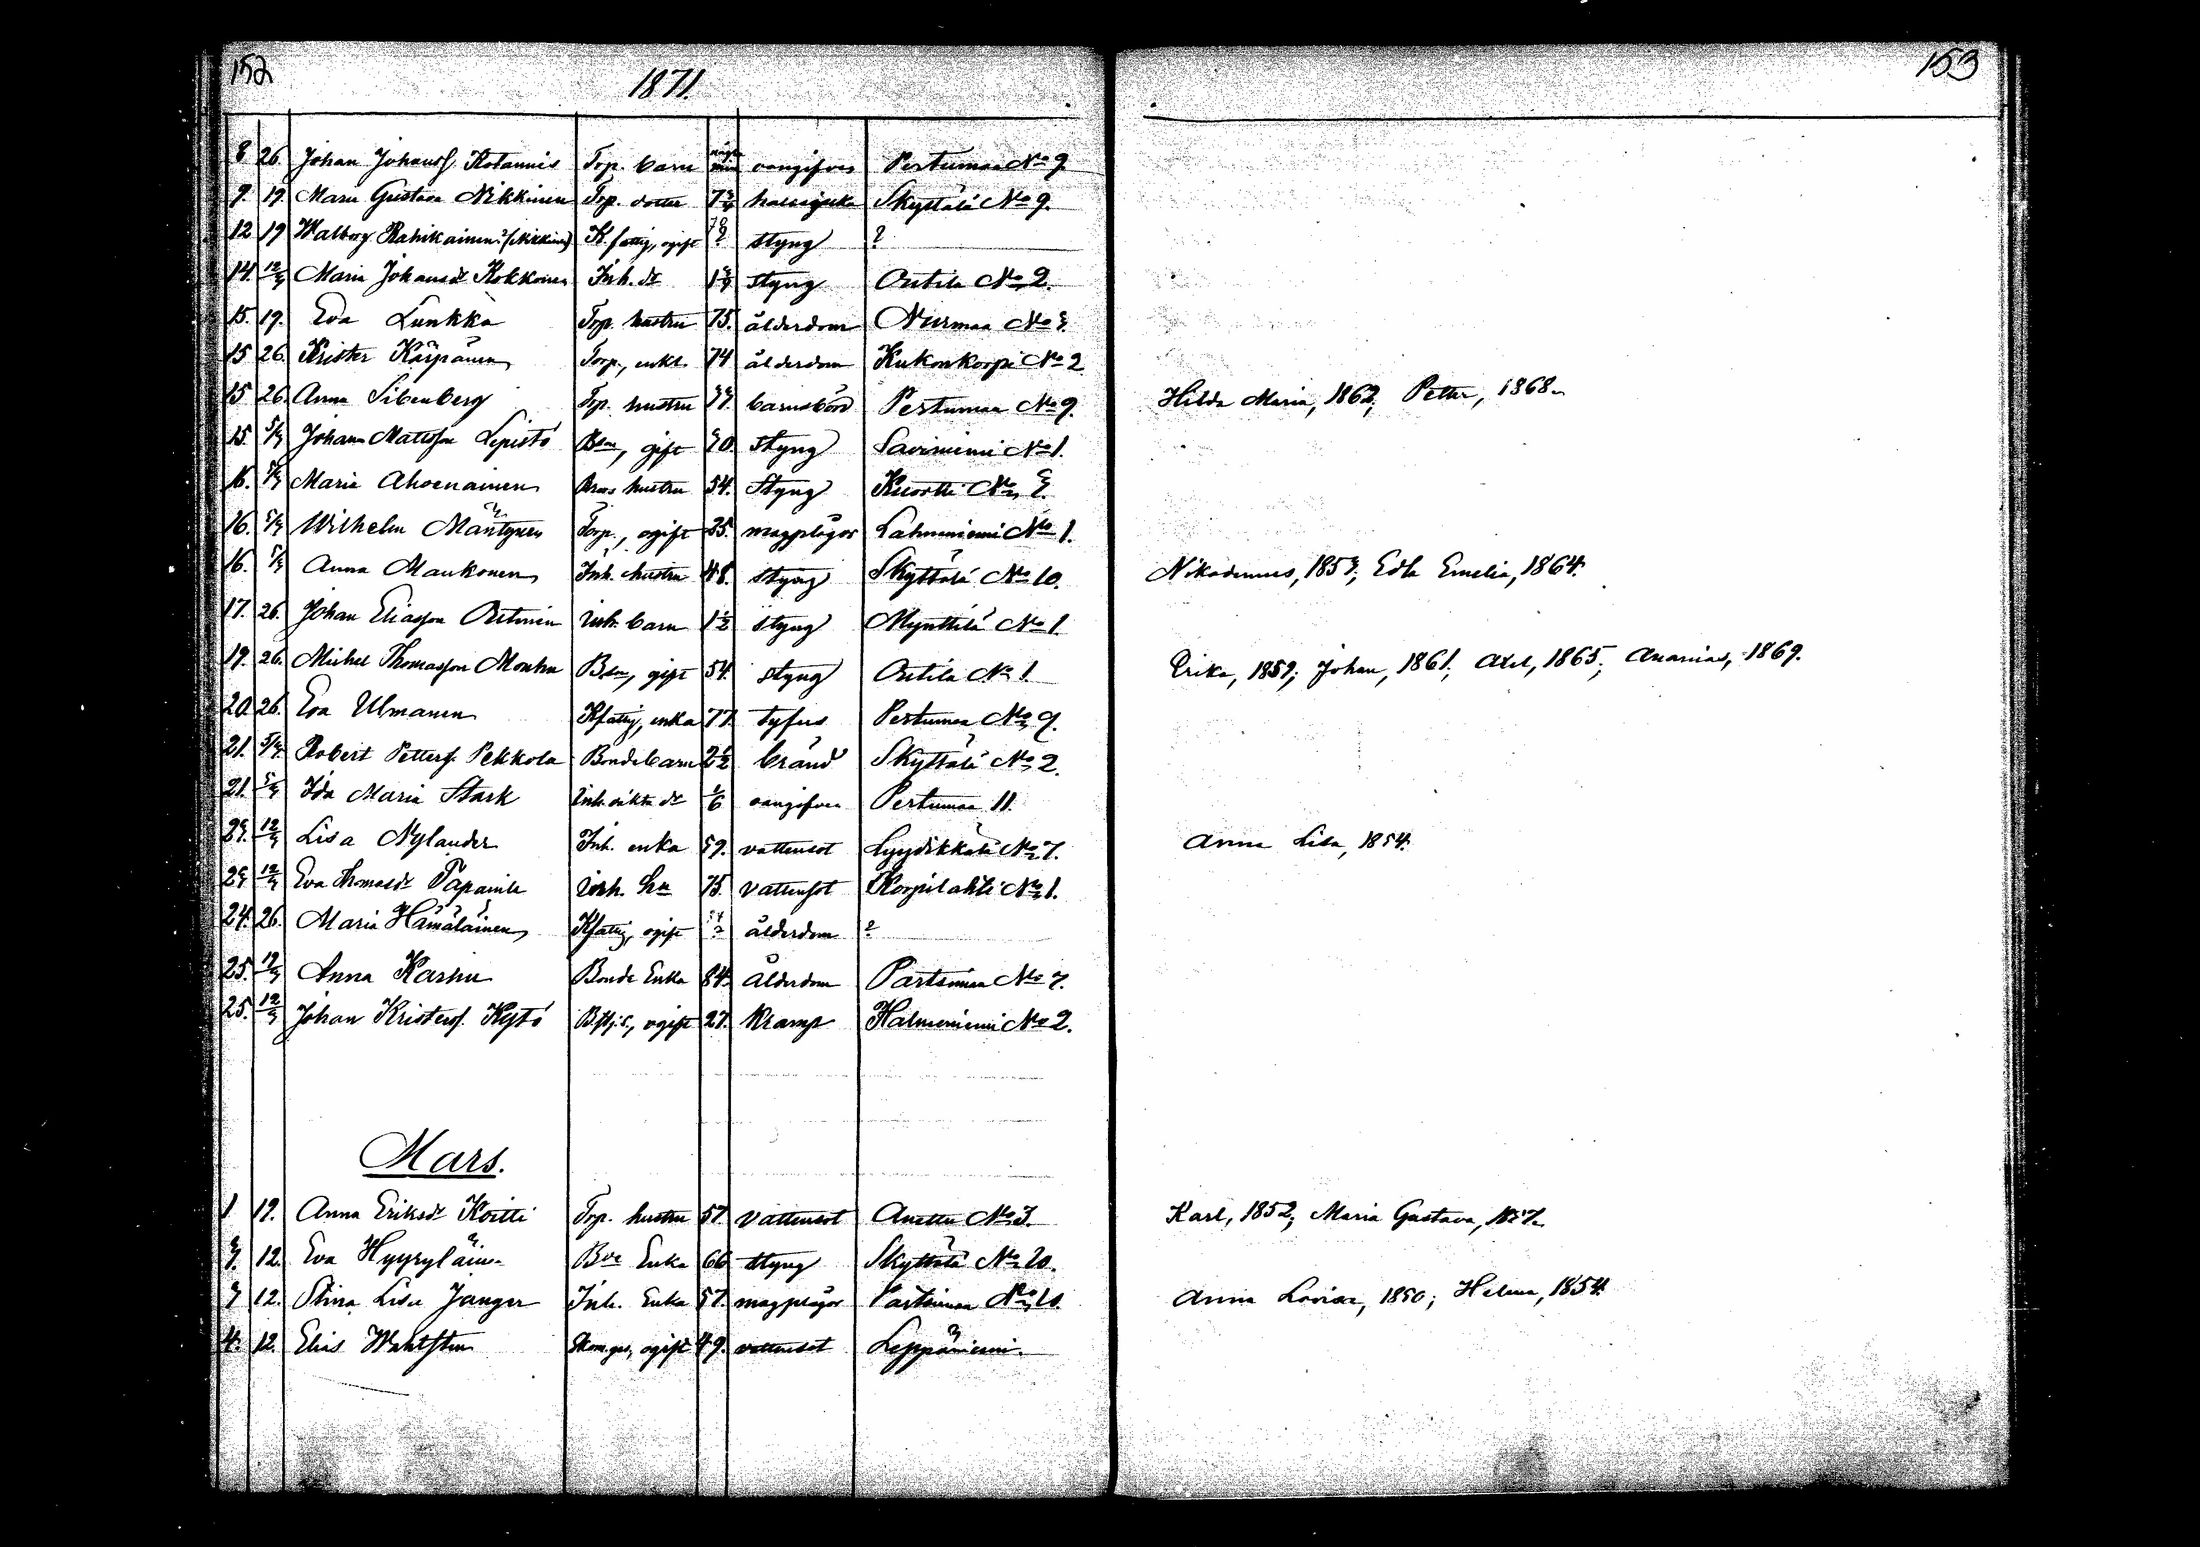 152
1871.
153
8 26. Johan Johansf. Kotannis Torp. barn några min oangifven Pertumaa No 9.
9. 19. Maria Gustava Nikkinen Torp. dotter 7 halssjuka Skyttälä No 9.
12 19 Walborg Rahikainen? (Nikkinen) K. fattig, ogift ? styng ?
14. 12/3 Maria Johansdr Kokkonen Inh. dr 1 styng Outila No 2.
15. 19. Eva Lunkka Torp. hustru 75. ålderdom Nurmaa No 3.
15 26. Krister Kärpänen Torp., enkl. 74 ålderdom Kukonkorpi No 2
15 26. Anna Sibenberg Torp. hustru barnsbörd Pertumaa No 9. Hilda Maria, 1862; Petter, 1868.
15. 5/3 Johan Mattsson Lepistö Bde, gift 70. styng Saviniemi No 1.
16. 5/3 Maria Ahoenainen hustru 54. Styng Kuortti No
16. 5/3 Wilhelm Mäntynen Torp., ogift 25. magplågor Lahnaniemi No 1.
16. 5/3 Anna Maukonen Inh. hustru 48. styng Skyttälä No 10. Nikodemus, 1853; Edla Emelia, 1864.
17. 26. Johan Eliasson Outinen Inh. barn 1 1/2 styng Mynttilä No 1.
19. 26. Michel Thomasson Monku Bde, gift 54. styng Outila No 1. Erika, 1859; Johan, 1861; Axel, 1865; Ananias, 1869.
20. 26. Eva Ulmanen Kfattig, enka 77. tyfus Pertumaa No 9.
21. 5/3. Robert Pettersf. Pekkola Bondebarn 2 1/2 bränd Skyttälä No 2.
21. 5/3 Ida Maria Stark Inh. oäkta dr 1/6 oangifven Pertumaa 11.
23. 12/3 Lisa Nylander Inh. enka 59. vattensot Lyydikkälä No 7. Anna Lisa, 1854.
23. 12/3 Eva Thomasdr Papainle Inh. 75. vattensot Korpilahti No 1.
24. 26. Maria Hämäläinen Kfattig, ogift ? ålderdom ?
25. 12/3 Anna Karhu Bonde Enka 84. Ålderdom Partsimaa No 7.
25. 12/3 Johan Kristersf. Kytö ogift 27. Kramp Halmeniemi No 2.
Mars.
1 19. Anna Eriksdr Koitti Torp. hustru 57. Vattensot Anettu No 3. Karl, 1852; Maria Gustava, 1857.
3. 12. Eva Hyyryläin. Bde Enka 66 styng Skyttälä No 20.
3 12. Stina Lisa Janger Inh. Enka 57. magplågor Partsimaa No 10. Anna Lovisa, 1850; Helena, 1854.
4. 12. Elias Wahlsten ogift 49. vattensot Leppäniemi.